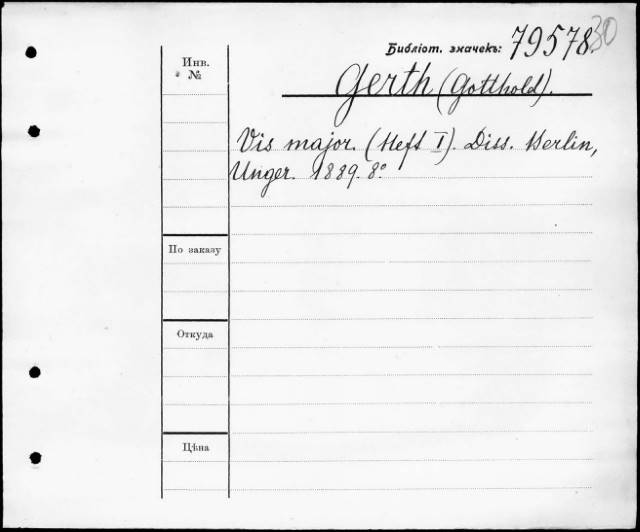 Библіот. значекъ: 79578.
30
Инв.
№
Gerth (Gotthold).
Vis major. (Heft I). Diss. Berlin,
Unger. 1889. 8°.
По заказу
Откуда
Цѣна